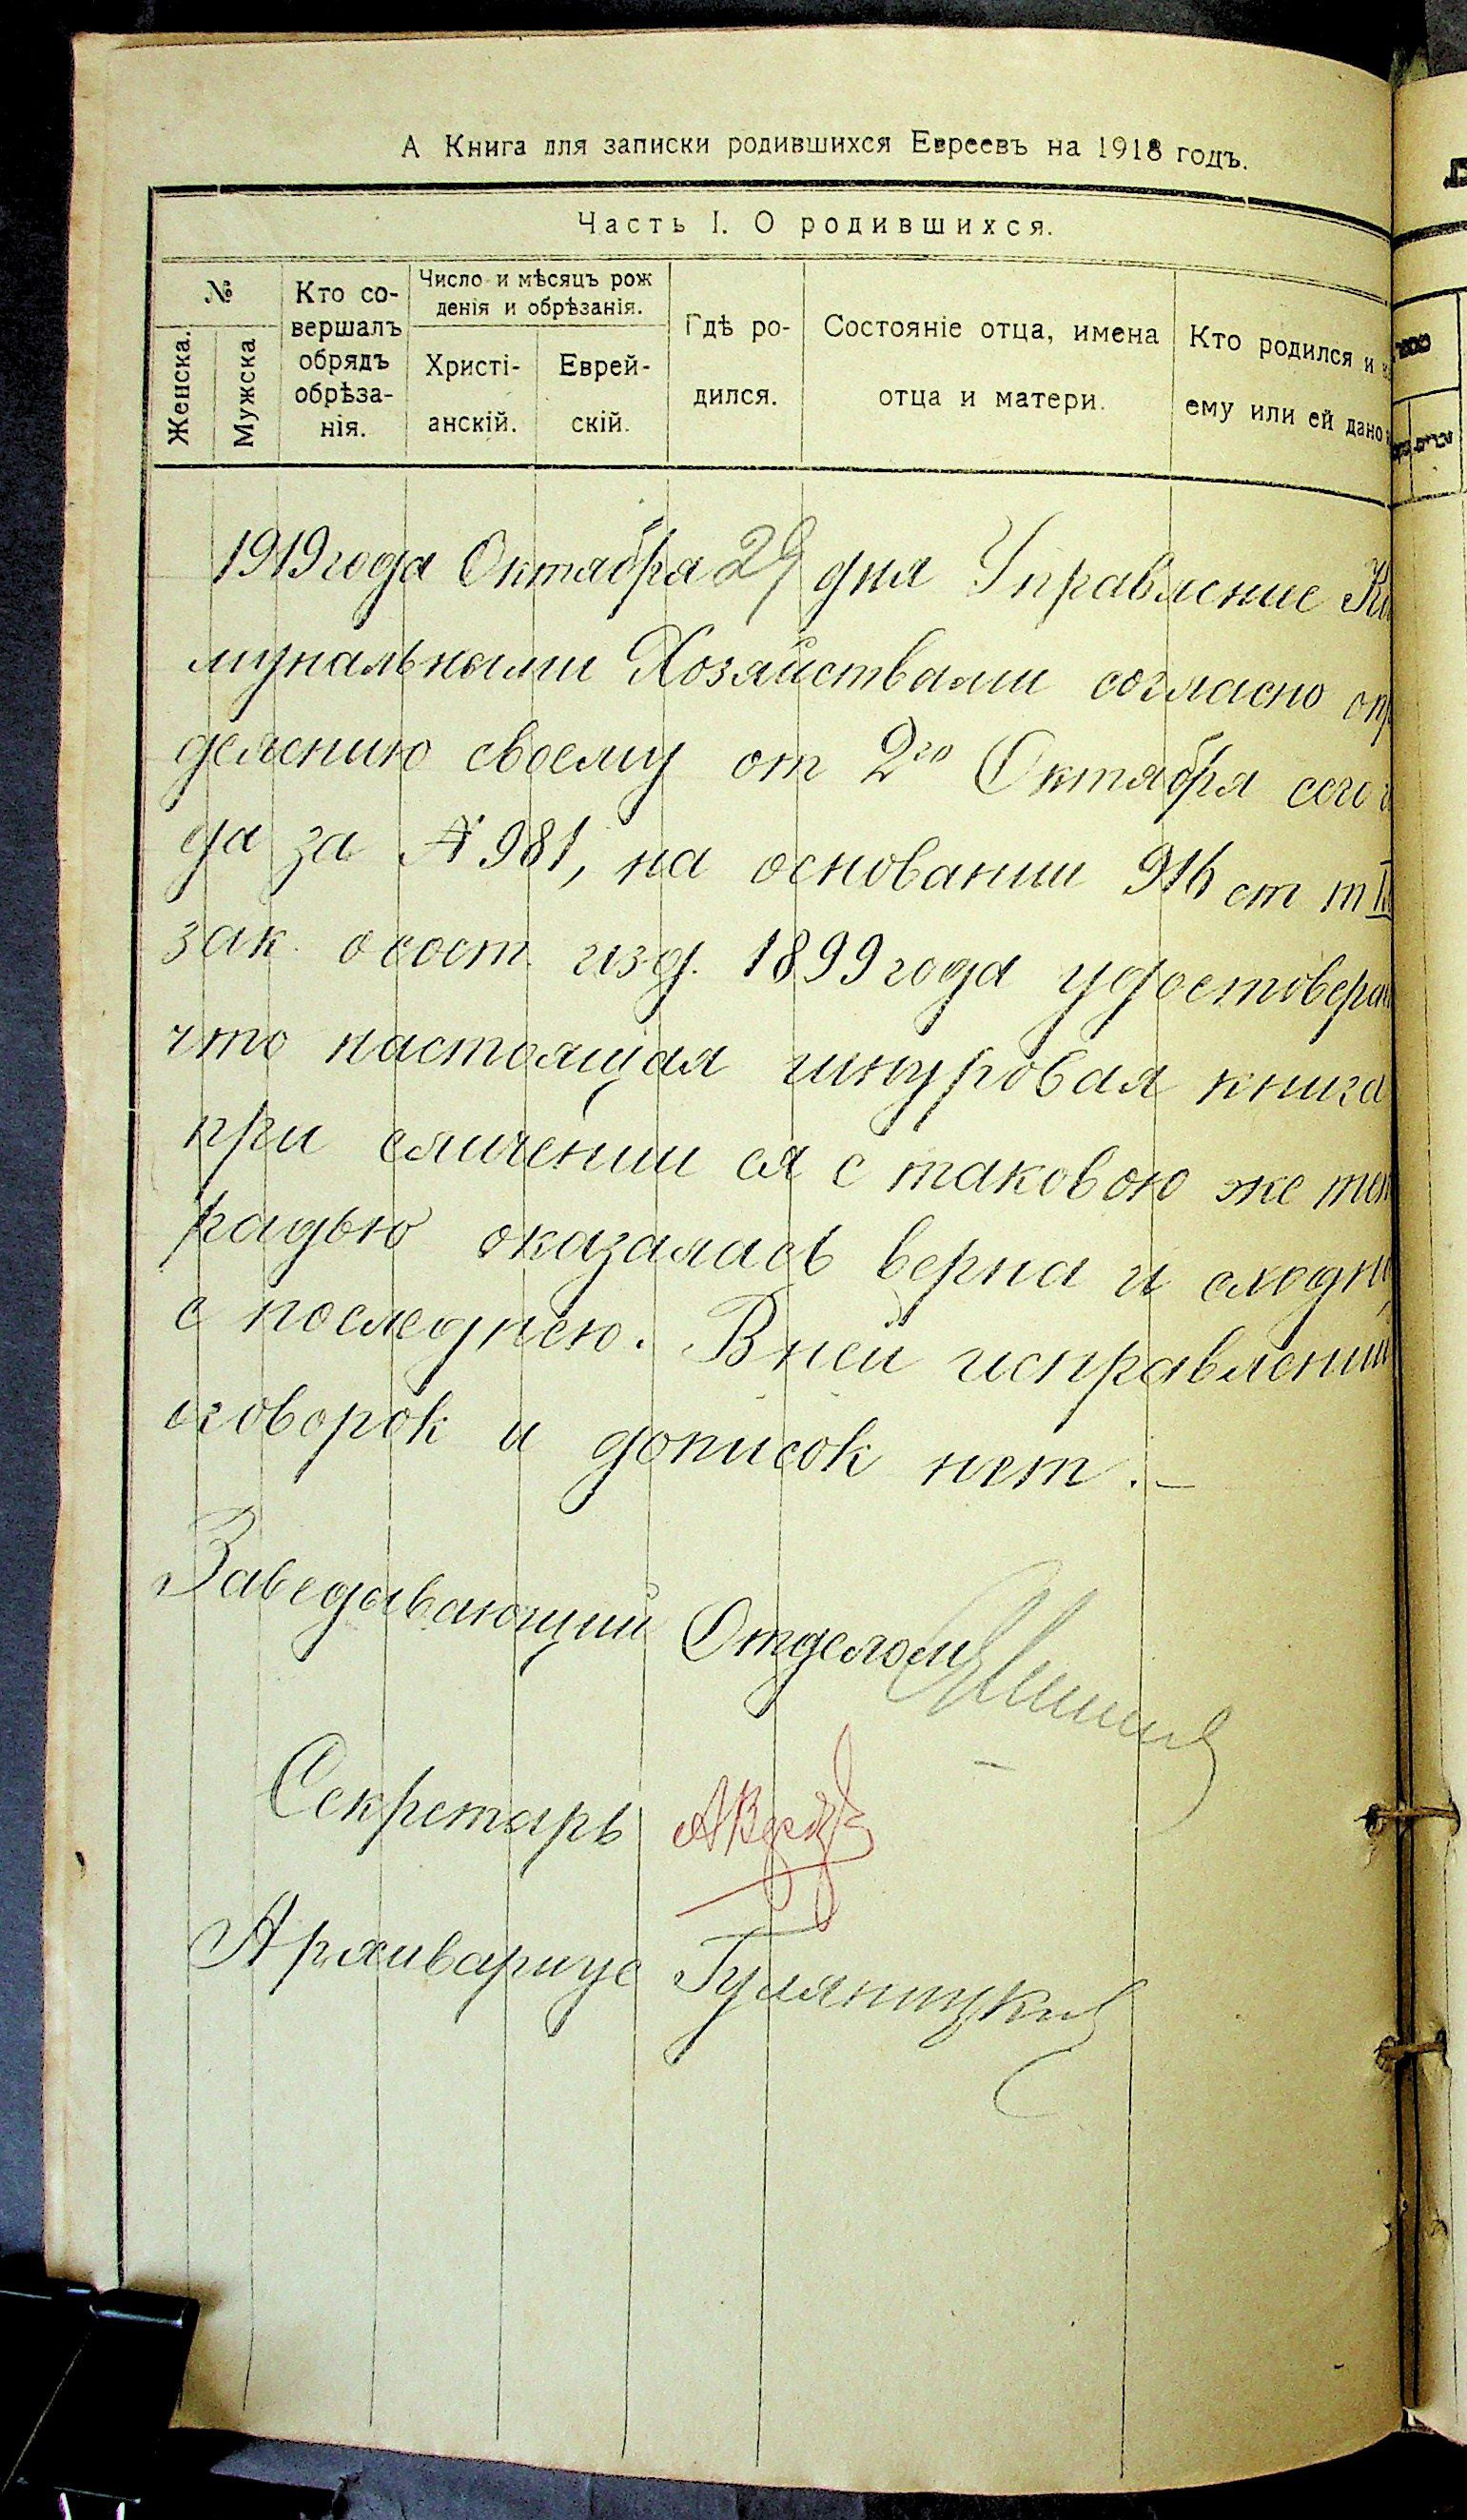 А Книга для записки родившихся Евреевъ на 1918 годъ.
Часть I. О родившихся.
№
Женска.
Мужска
Кто со-
вершалъ
обрядъ
обрѣза-
нія.
Число и мѣсяцъ рож
денія и обрѣзанія.
Христі-
анскій.
Еврей-
скій.
Гдѣ ро-
дился.
Состояніе отца, имена
отца и матери.
Кто родился и
ему или ей дано
1919 года Октября 29 дня Управление Ко
мунальными Хозяйствами согласно опр
делению своему от 2го Октября сего г
да за № 981, на основании 916 ст т
зак. о сост. изд. 1899 года удостоверяе
что настоящая шнуровая книга
при сличении ея с таковою же тет
радью оказалась верна и сходна
с последнею. В ней исправлений
оговорок и дописок нет. –
Заведывающий Отделом
Секретарь
Архивариус Гуляницкий